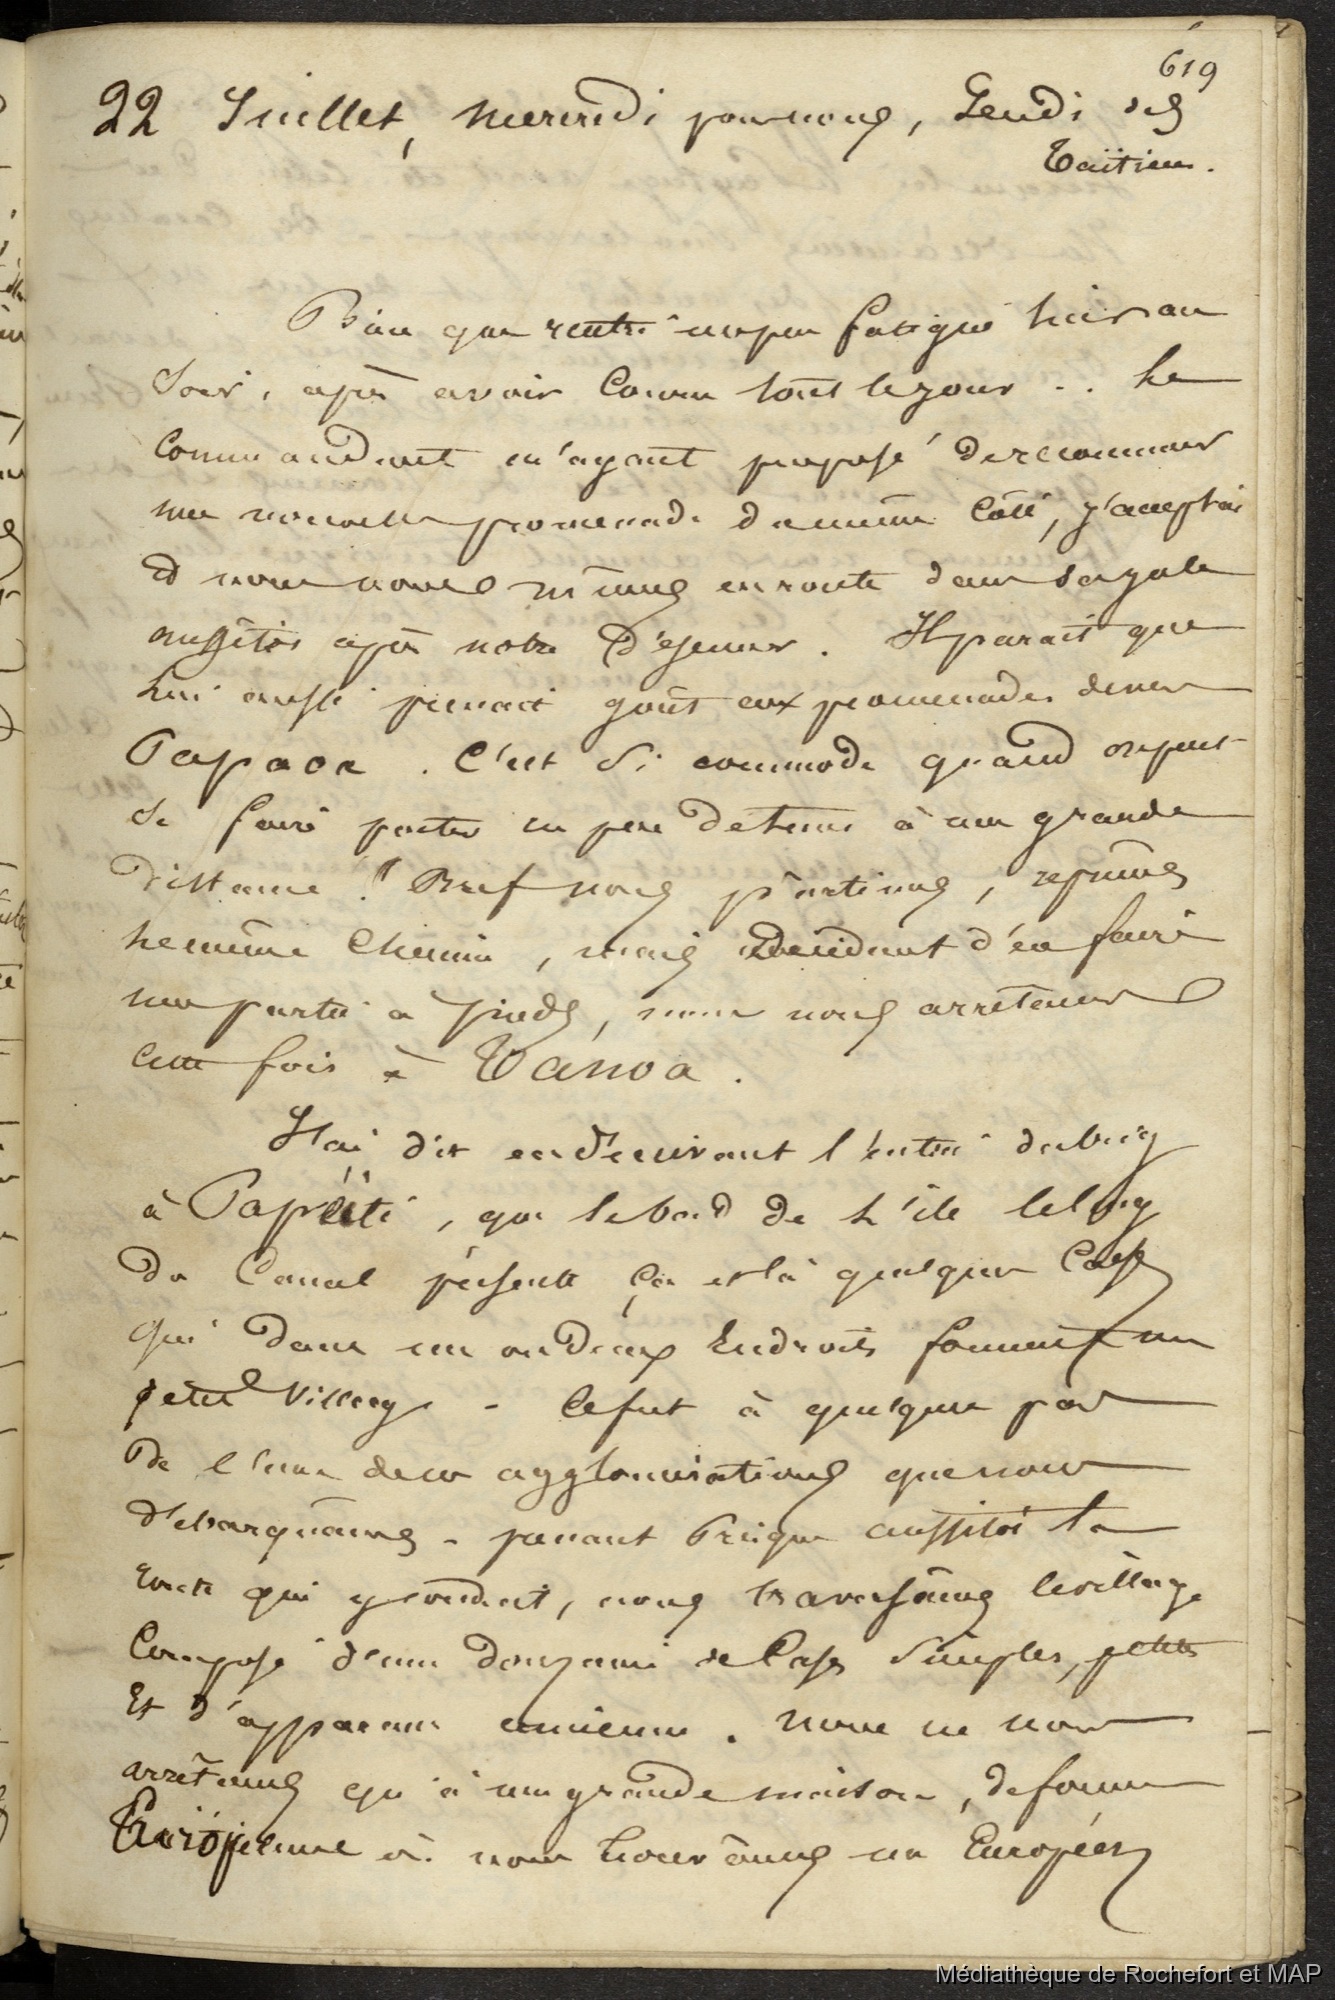 619
22 Juillet, mercredi pour nous, Jeudi des
Taïtiens.
Bien que rentré un peu fatigué hier au
soir, après avoir couru tout le jour .. le
Commandant m'ayant proposé de recommencer
une nouvelle promenade du même côté, j'acceptai
et nous nous mîmes en route dans sa yole
aussitôt après notre déjeuner. Il parait que
lui aussi prenait goût aux promenades devers
Papaoa. C'est si commode quand on peut
se faire porter en peu de tems à une grande
distance ! Bref nous partimes, reprîmes
le même chemin, mais décidant d'en faire
une partie à pieds, nous nous arrêtames
cette fois à Tanoa.
J'ai dit en décrivant l'entrée du brig
à Papeïti, que le bord de l'île le long
du Canal présente ça et là quelques Cases
qui dans un ou deux Endroits forment un
petit Village - Ce fut à quelques pas
de l'une de ces agglomérations que nous
débarquâmes - prenant presque aussitôt la
route qui y conduit, nous traversâmes le village
Composé d'une douzaine de Cases simples, petites
Et d'apparence ancienne. Nous ne nous
arrêtames qu'à une grande maison, de forme
Européenne où nous trouvâmes un Européen
Médiathèque de Rochefort et MAP